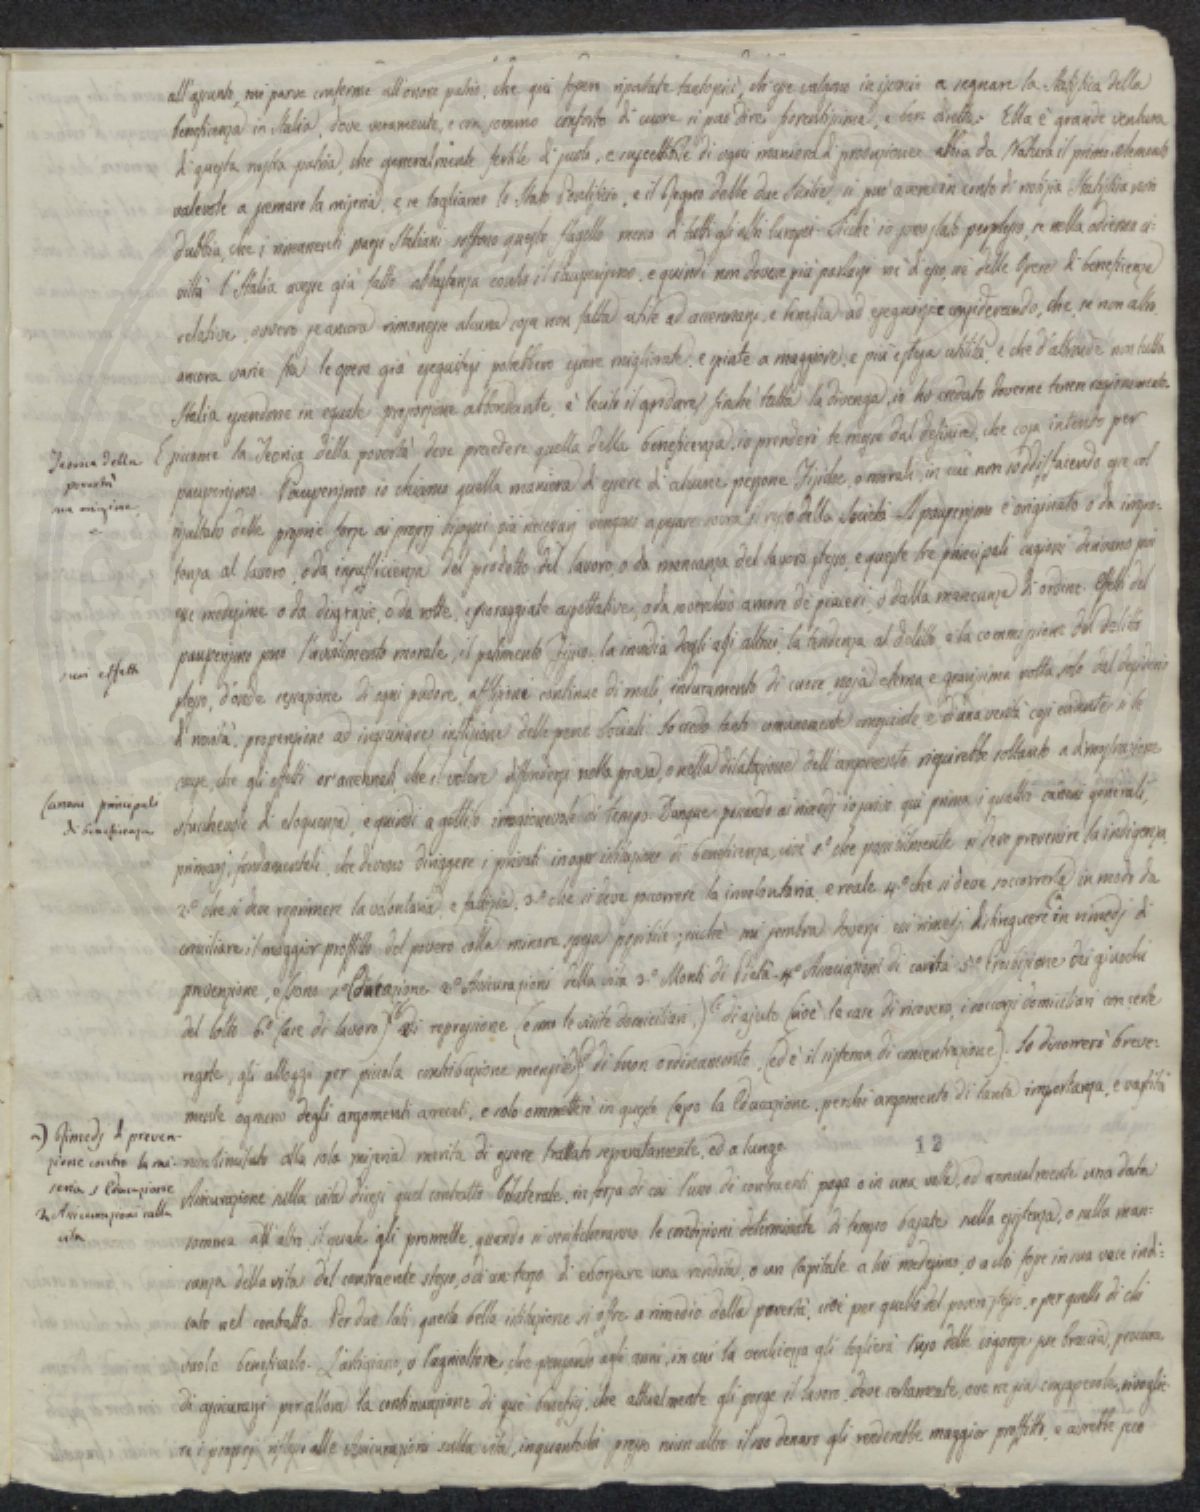 all'uopo, mi parve conforme all'onore patrio, che qui
beneficenza in Italia, dove veramente, e con sommo conforto di cuore si può dire fiorentissima, e bene diretta. Ella è grande ventura
di questa nostra patria, che generalmente fertile di suolo, e suscettibile di ogni maniera di produzione abbia da Natura il primo elemento
valevole a scemare la miseria, e se togliamo lo Stato Pontificio, e il Regno delle due Sicilie, si può avere in conto di notizia Statistica non
dubbia, che i rimanenti paesi Italiani soffrono questo flagello meno di tutti gli altri Europei. Sicchè io sono stato perplesso, se nella odierna ci-
viltà l'Italia avesse già fatto abbastanza contro il pauperismo, e quindi non dovere più parlarsi nè di esso, nè delle Opere di beneficenza
relative, ovvero se ancora rimanesse alcuna cosa non fatta utile ad accennarsi, e benefica ad eseguirsi: e considerando, che, se non altro,
ancora varie fra le opere già eseguitesi potrebbero essere migliorate, e a maggiore, e più estesa utilità, e che d'altronde non tutta
Italia essendone in eguale proporzione abbondante, è lecito il gridare finchè tutta la divenga, io ho creduto doverne tenere ragionamento.
Teorica della
povertà
sua origine.
E siccome la Teorica della povertà deve precedere quella della beneficenza, io prenderò le mosse dal definire, che cosa intendo per
pauperismo. Pauperismo io chiamo quella maniera di essere di alcune persone Fisiche, o morali, in cui non soddisfacendo esse col
risultato delle proprie forze ai proprj bisogni più necessarj vengono a pesare sovra il resto della Società. Il pauperismo è originato o da impo-
tenza al lavoro, o da insufficienza del prodotto del lavoro, o da mancanza del lavoro stesso, e queste tre principali cagioni derivano poi
esse medesime o da disgrazie, o da rotte, e aspettative, o da soverchio amore de' piaceri, o dalla mancanza di ordine. Effetti del
suoi effetti
pauperismo sono l'avvilimento morale, il patimento fisico, la invidia degli agi altrui, la tendenza al delitto, e la commissione del delitto
stesso, d'onde cessazione di ogni pudore, afflizioni continue di mali, induramento di cuore, noja eterna e gravissima rotta solo dal desiderio
di novità, propensione ad ingannare, inflizione delle pene Sociali. Io credo tanto comunemente conosciute e d'una verità così evidente si le
cause, che gli effetti or accennati, che il volere diffondersi nella prosa, o nella dilatazione dell'argomento riuscirebbe soltanto a dimostrazione
Canoni principali
di beneficenza
stucchevole di eloquenza, e quindi a gettito irragionevole di tempo. Dunque passando ai rimedj io fisso qui prima i quattro canoni generali,
primarj, fondamentali, che devono dirigere i privati in ogni istituzione di beneficenza, cioè 1.° che possibilmente si deve prevenire la indigenza,
2.° che si deve reprimere la volontaria, e fattizia, 3.° che si deve soccorrere la involontaria, e reale 4.° che si deve soccorrerla in modo da
conciliare il maggior profitto del povero colla minore spesa possibile; sicchè mi sembra doversi i rimedj distinguere in rimedj di
prevenzione, e sono 1.° Educazione 2.° Assicurazioni della vita 3.° Monti di Pietà 4.° Associazioni di carità 5.° Proibizione dei giuochi
del lotto 6.° Case di lavoro) di repressione (e sono le visite domiciliari,) di ajuto (cioè le case di ricovero, i soccorsi domiciliari con certe
regole, gli alloggi per piccola contribuzione mensile) di buon ordinamento (ed è il sistema di concentrazione). Io discorrerò breve-
mente ognuno degli argomenti accennati, e solo ommetterò in questo Capo la Educazione, perchè argomento di tanta importanza, e vastità
a) Rimedj di preven-
zione contro la mi-
seria, 1. Educazione
2. Assicurazioni sulla
vita
non limitato alla sola miseria merita di essere trattato separatamente, ed a lungo.
12
Assicurazione sulla vita dicesi quel contratto bilaterale, in forza di cui l'uno di contraenti paga o in una volta, od annualmente una data
somma all'altro, il quale gli promette, quando si verificheranno le condizioni determinate di tempo basate sulla esistenza, o sulla man-
canza della vita del contraente stesso, o di un terzo di esborsare una rendita, o un Capitale a lui medesimo, o a chi fosse in sua vece indi-
cato nel contratto. Per due lati questa bella istituzione si offre a rimedio della povertà, cioè per quello del povero stesso, e per quello di chi
vuole beneficarlo. L'artigiano, o l'agricoltore, che pensando agli anni, in cui la vecchiezza gli toglierà l'uso delle vigorose sue braccia, procura
di assicurarsi per allora la continuazione di que' benefizj, che attualmente gli porge il lavoro, deve certamente, ove ne sia consapevole, rivoglie-
re i proprj riflessi alle Assicurazioni sulla vita, inquantochè presso niun altro il suo denaro gli renderebbe maggior profitto, e avrebbe seco